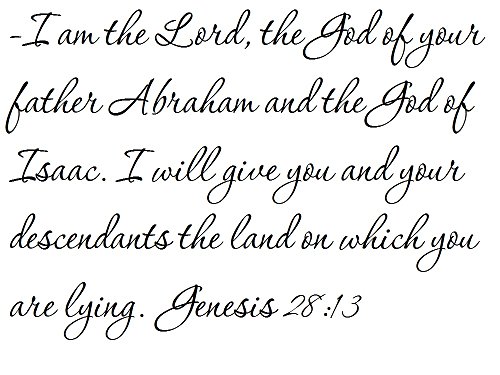 -I am the Lord, the God of your
father Abraham and the God of
Isaac. I will give you and your
descendants the land on which you
are lying. Genesis 28:13